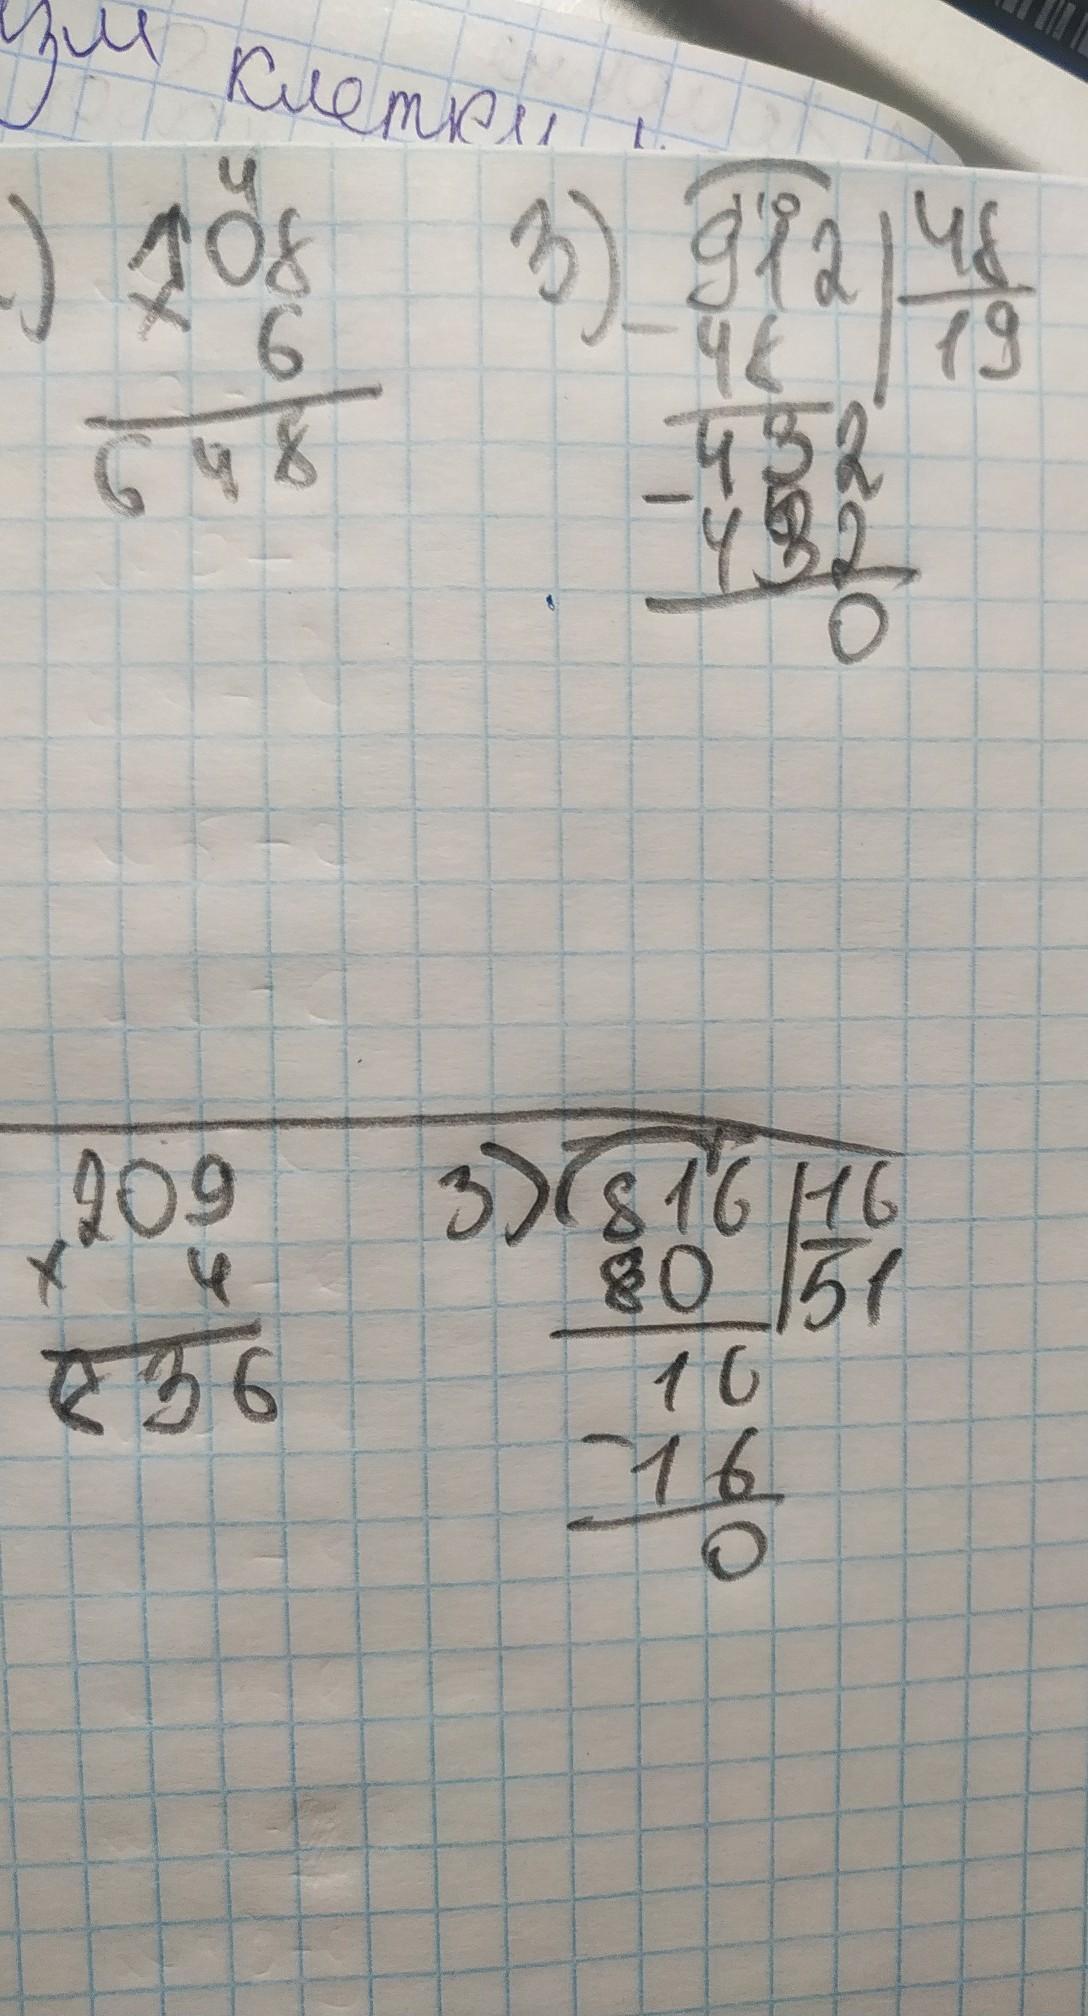 клетки
4
) 108
× 6
648
3) 912 | 48
- 48 | 19
432
- 432
0
209
× 4
836
3) 816 | 16
80 | 51
16
- 16
0